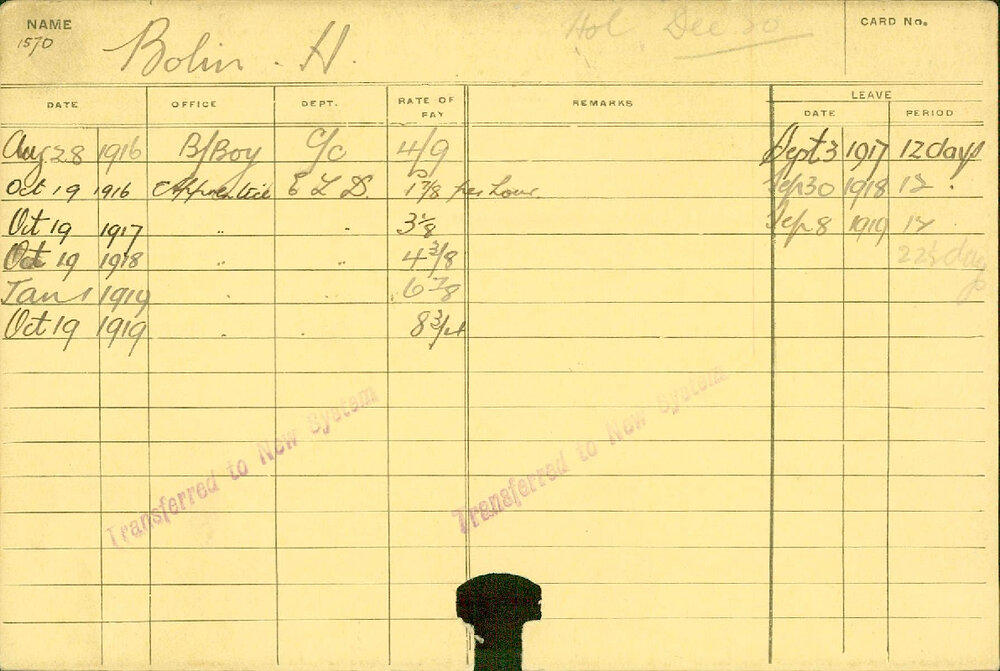 NAME CARD No.
1570 Bolin . H. Hol Dec 20
DATE OFFICE DEPT. RATE OF PAY REMARKS LEAVE
DATE PERIOD
Aug 28 1916 B/Boy C/c 4/9 Sept 3 1917 12 days
Oct 19 1916 Apprentice E L D. 1 7/8 per hour. Sep 30 1918 12 .
Oct 19 1917 " " 3 1/8 Sep 8 1919 12
Oct 19 1918 " " 4 3/8 22½ days
Jan 1 1919 " " 6 7/8
Oct 19 1919 " " 8 3/4
Transferred to New System Transferred to New System